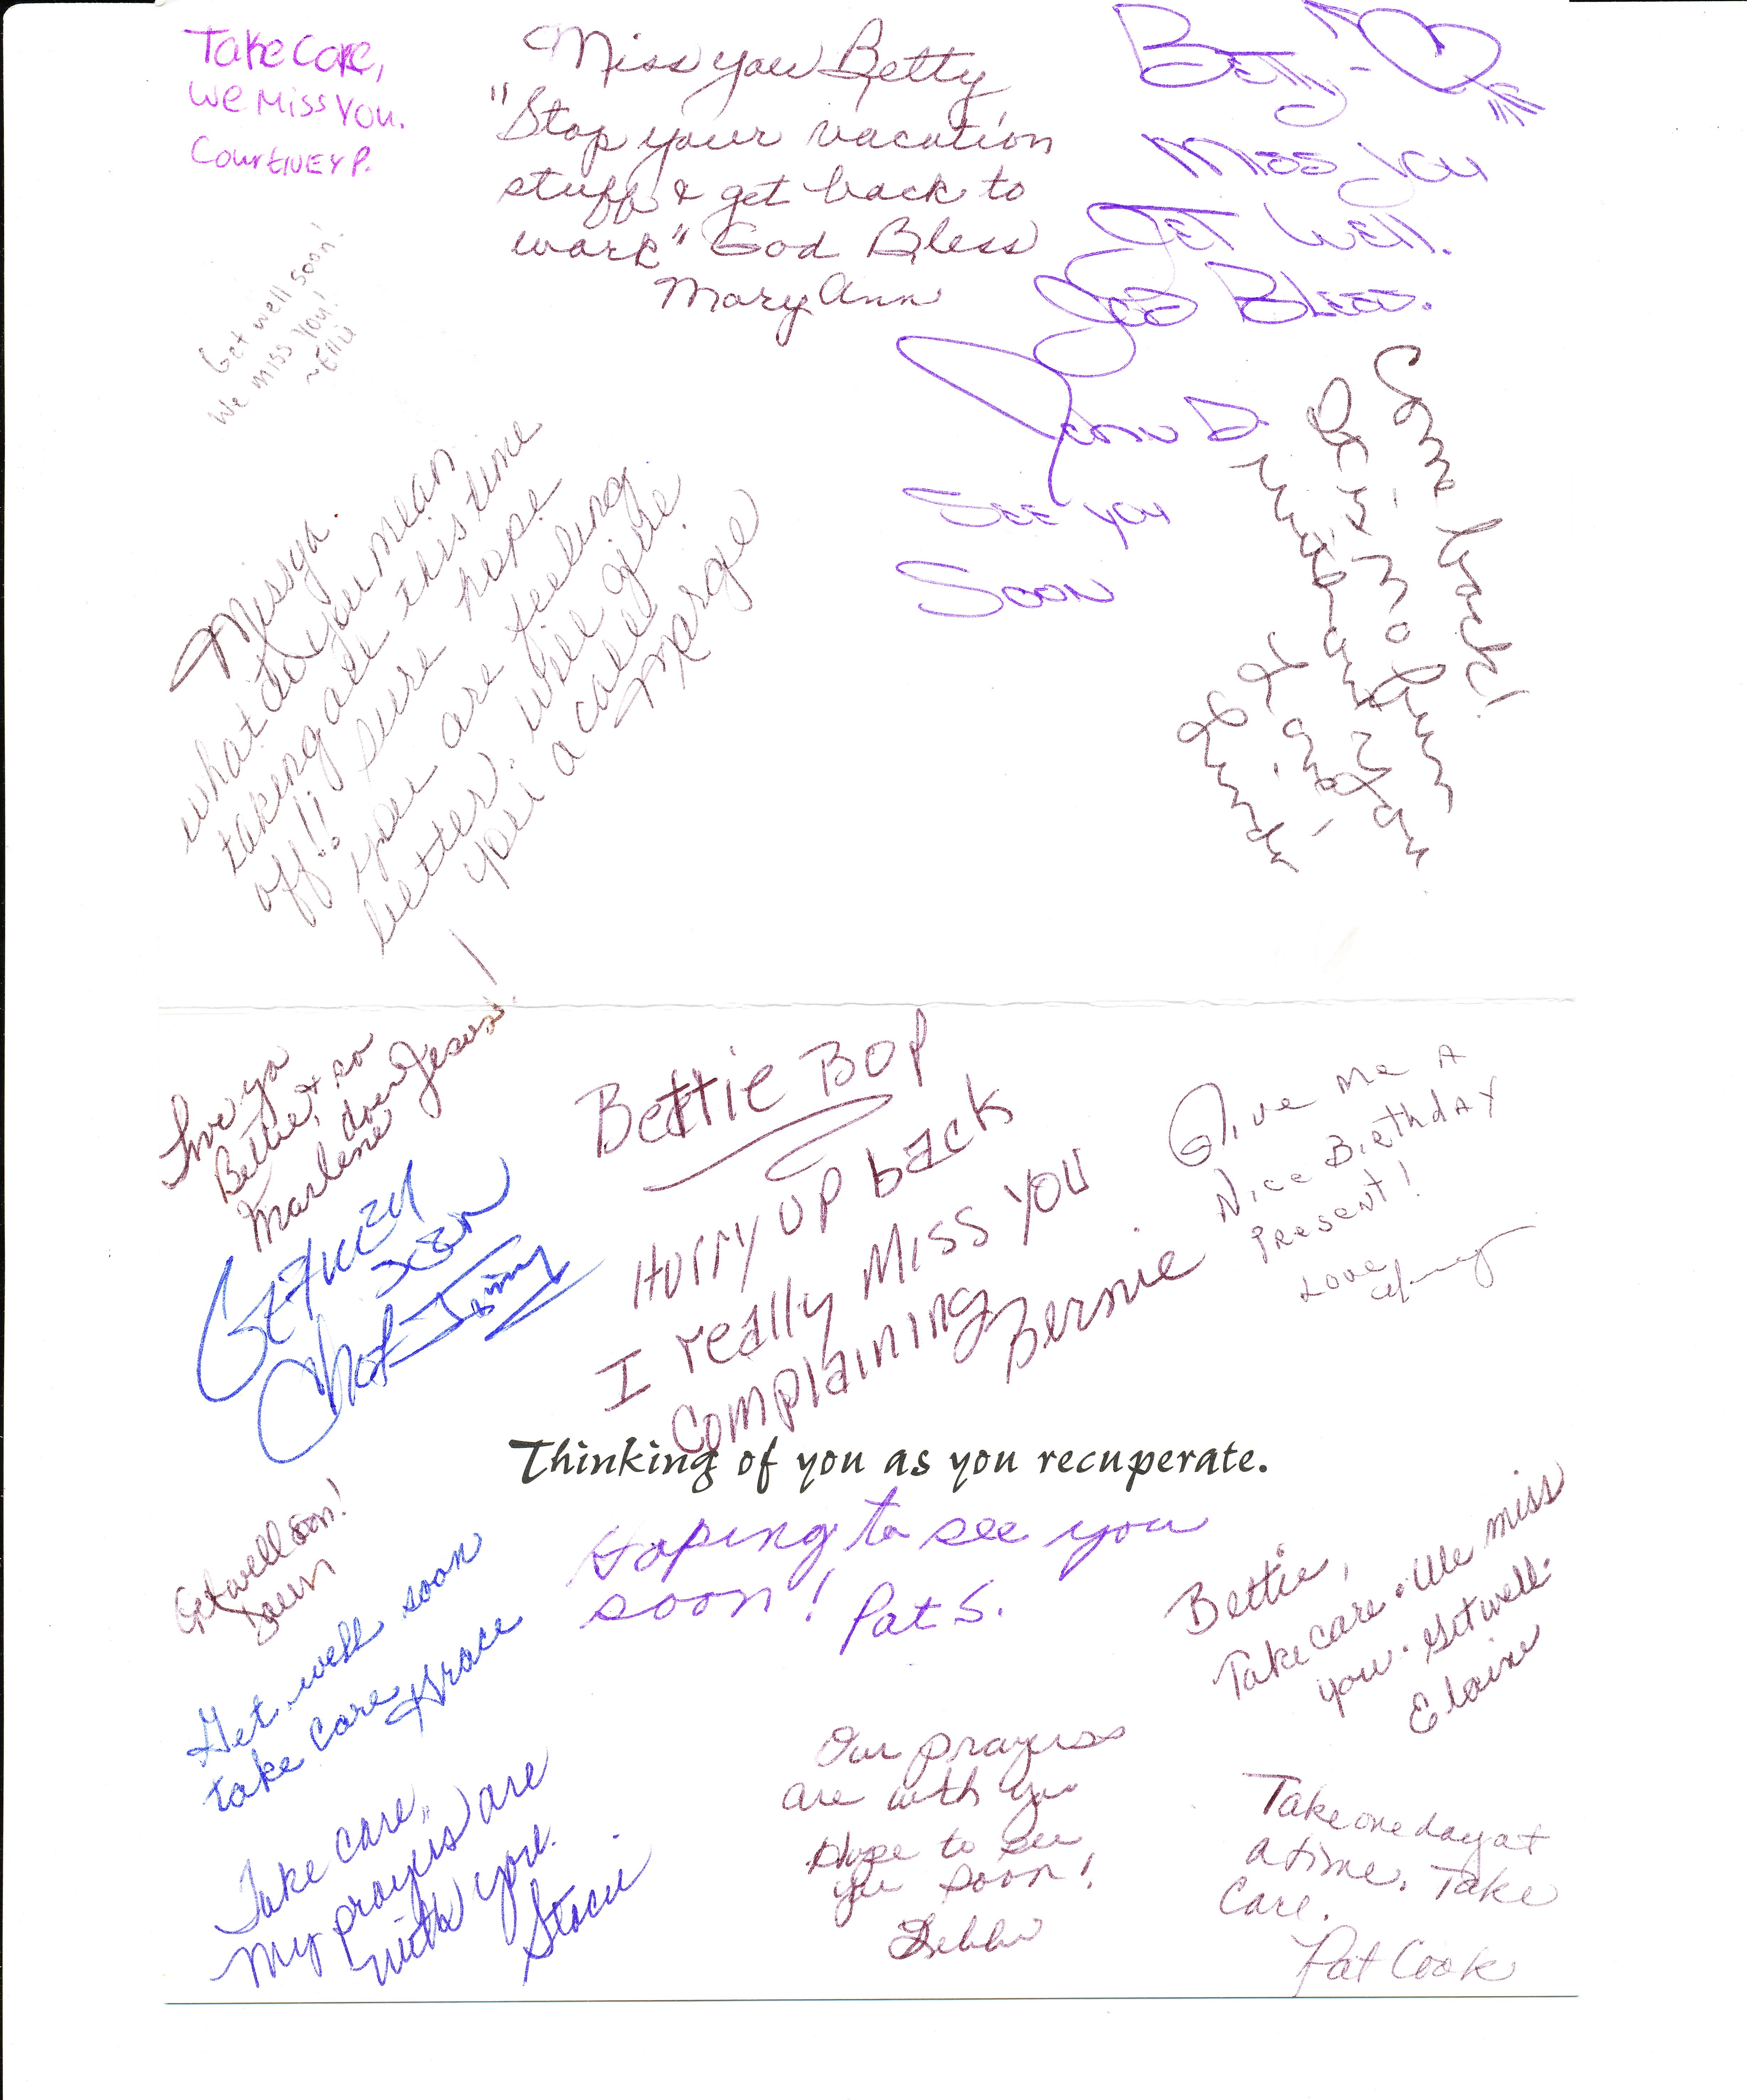 Take Care,
We Miss You.
Courtney P.
Miss you Betty
"Stop your vacation
stuff & get back to
work" God Bless
Mary Ann
Betty -
Miss you
Get Well.
God Bless.
John D.
See you
Soon
Get well soon!
We miss you!
Missya.
what do you mean
taking all this time
off!! Sure hope
you are feeling
better. will give
you a call
Marge
Come back!
It's no fun
without you
Love ya,
Linda
Love ya
Bettie & so
does Jesus!
Marlene
Bettie BOP
Hurry up back
I really Miss you
Complaining
Bernie
Give me A
Nice Birthday
Present!
Love
Get
Soon
Jimmy
Thinking of you as you recuperate.
Hoping to see you
soon! Pat S.
Get well soon!
Dawn
Get well soon
take care Grace
Take care,
My prayers are
with you.
Staci
Bettie,
Take care. We miss
you. Get well.
Elaine
Our prayers
are with you
Hope to see
you soon!
Debbie
Take one day at
a time. Take
Care.
Pat Cook